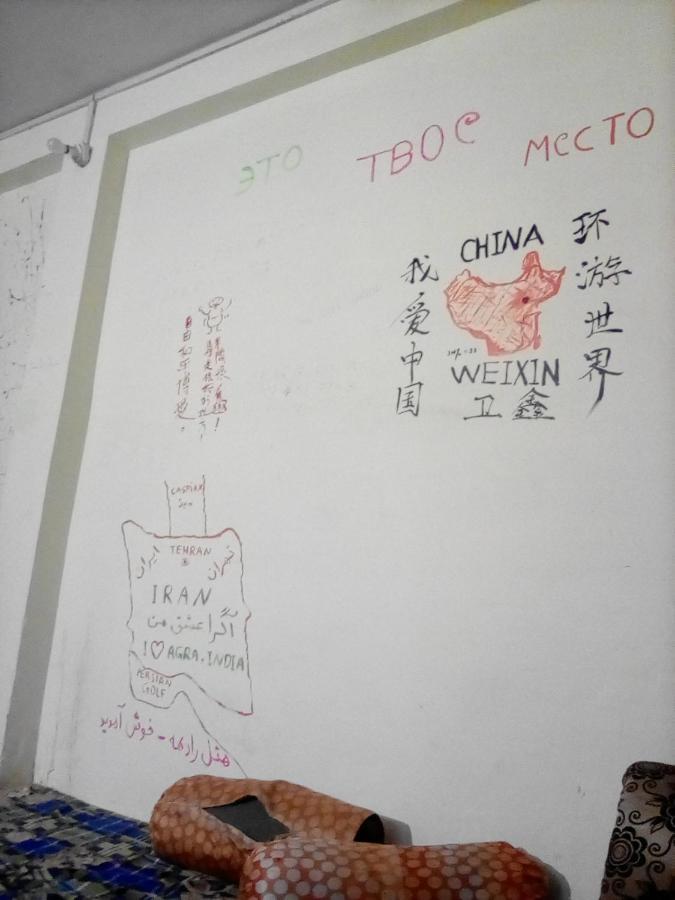 ЭТО ТВОЕ МЕСТО
CHINA
我爱中国
环游世界
WEIXIN
卫鑫
自由平博爱。
CASPIAN
SEA
TEHRAN
تهران
ایران
IRAN
آگرا عشق من
I ♡ AGRA. INDIA
PERSIAN
GOLF
هتل رادهه - خوش آمدید